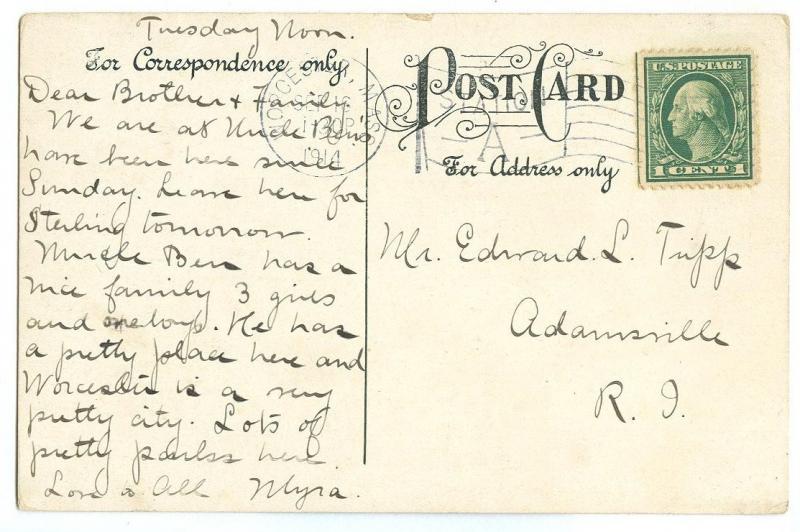 Tuesday Noon.
For Correspondence only
Dear Brother & Family
We are at Uncle Ben's
have been here since
Sunday. Leave here for
Sterling tomorrow.
Uncle Ben has a
nice family 3 girls
and one boy. He has
a pretty place here and
Worcester is a very
pretty city. Lots of
pretty parks here
Love to All Myra.
WORCESTER, MASS.
1914
STATION
A
POST CARD
For Address only
U.S. POSTAGE
1 CENT 1
Mr. Edward L. Tripp
Adamsville
R. I.